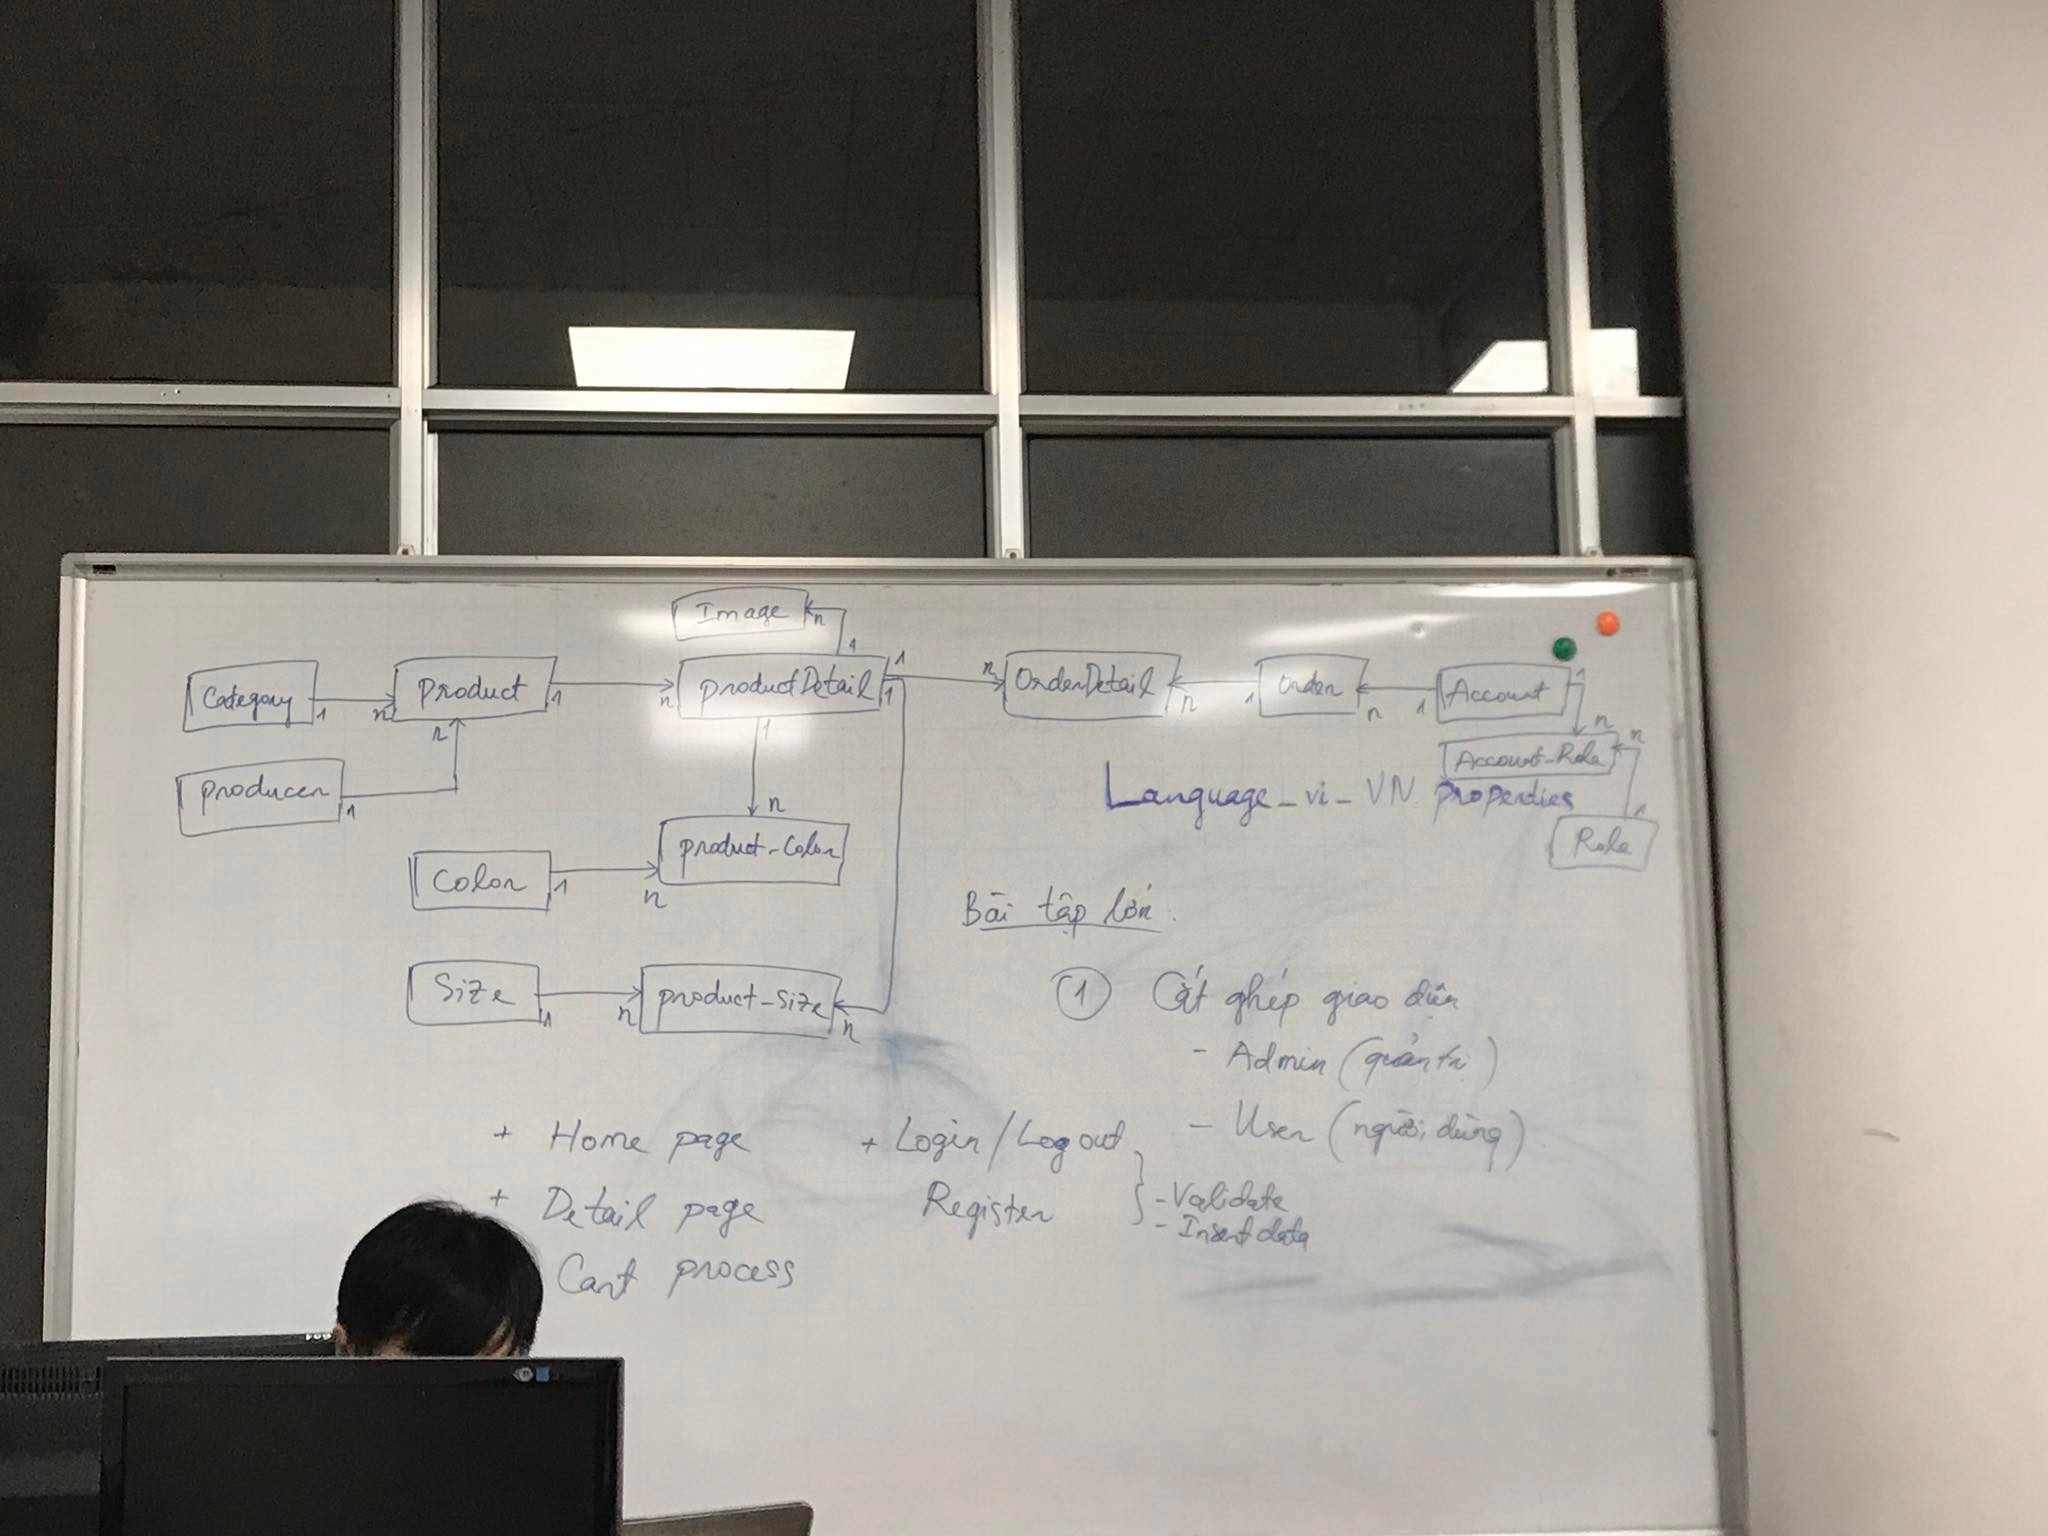 Image
n
1
Category
1
n
Product
1
n
productDetail
1
1
n
OrderDetail
n
1
Order
n
1
Account
1
n
Account-Role
n
1
Role
Producer
1
n
1
n
product-Color
Color
1
n
Language_vi_VN properties
Size
1
n
product-Size
n
Bài tập lớn.
1 Cắt ghép giao diện
- Admin (quản trị)
- User (người dùng)
+ Home page
+ Detail page
Cart process
+ Login/Logout
Register
- Validate
- Insert data